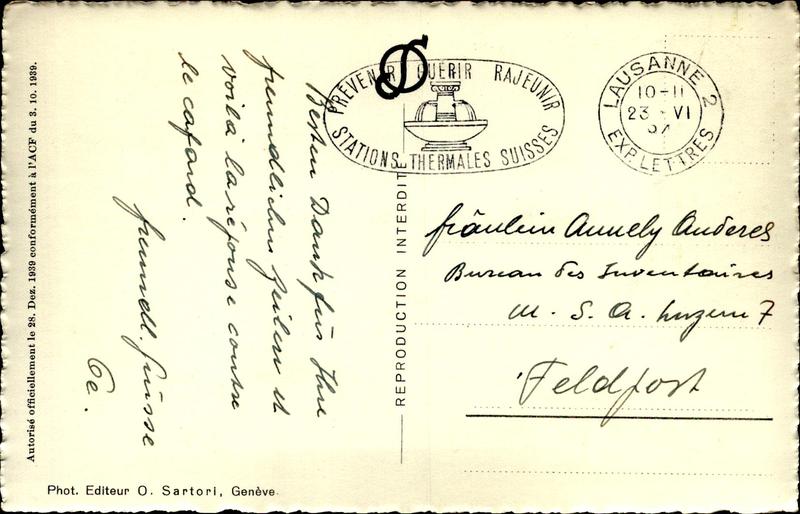 Autorisé officiellement le 28. Dez. 1939 conformément à l'ACF du 3. 10. 1939.
Besten Dank für Ihre
freundlichen Zeilen et
voilà la réponse contre
le cafard.
freundl. Grüsse
PRÉVENIR GUÉRIR RAJEUNIR
STATIONS THERMALES SUISSES
LAUSANNE 2
10-11
23 VI
EXP. LETTRES
Fräulein Annely Anderes
Bureau des Inventaires
M. S. A. Luzern 7
Feldpost
REPRODUCTION INTERDITE
Phot. Editeur O. Sartori, Genève